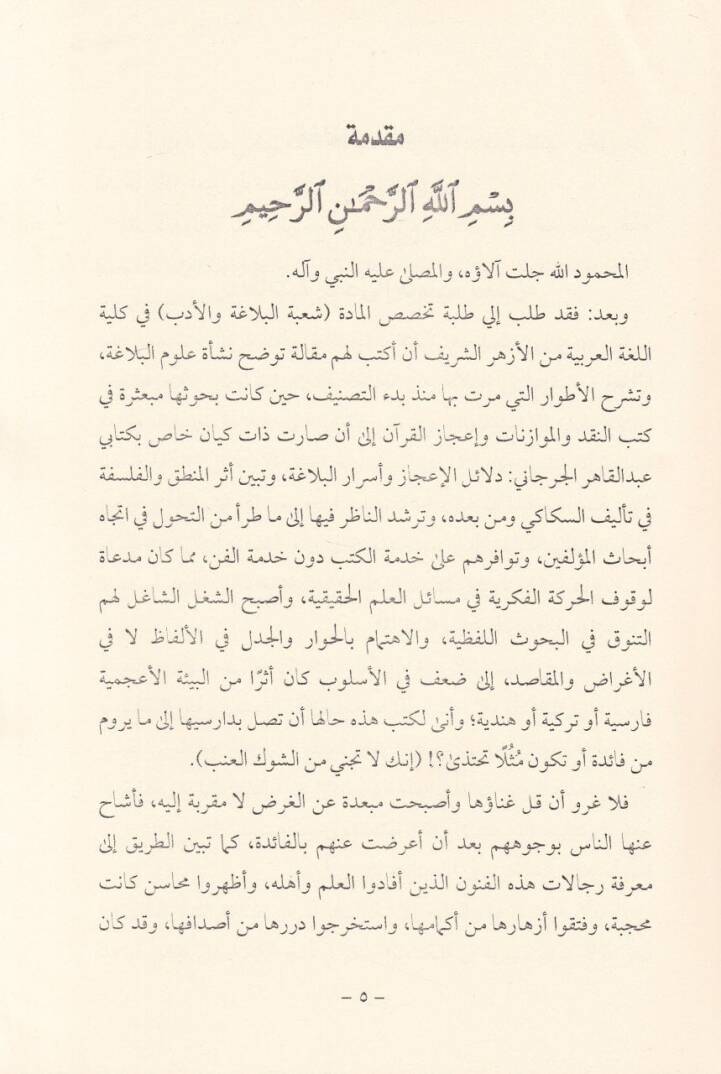 مقدمة
بِسْمِ ٱللَّهِ ٱلرَّحْمَـٰنِ ٱلرَّحِيمِ
المحمود الله جلت آلاؤه، والمصلىٰ عليه النبي وآله.
وبعد: فقد طلب إلي طلبة تخصص المادة (شعبة البلاغة والأدب) في كلية
اللغة العربية من الأزهر الشريف أن أكتب لهم مقالة توضح نشأة علوم البلاغة،
وتشرح الأطوار التي مرت بها منذ بدء التصنيف، حين كانت بحوثها مبعثرة في
كتب النقد والموازنات وإعجاز القرآن إلىٰ أن صارت ذات كيان خاص بكتابي
عبدالقاهر الجرجاني: دلائل الإعجاز وأسرار البلاغة، وتبين أثر المنطق والفلسفة
في تأليف السكاكي ومن بعده، وترشد الناظر فيها إلىٰ ما طرأ من التحول في اتجاه
أبحاث المؤلفين، وتوافرهم علىٰ خدمة الكتب دون خدمة الفن، مما كان مدعاة
لوقوف الحركة الفكرية في مسائل العلم الحقيقية، وأصبح الشغل الشاغل لهم
التنوق في البحوث اللفظية، والاهتمام بالحوار والجدل في الألفاظ لا في
الأغراض والمقاصد، إلىٰ ضعف في الأسلوب كان أثرًا من البيئة الأعجمية
فارسية أو تركية أو هندية؛ وأنىٰ لكتب هذه حالها أن تصل بدارسيها إلىٰ ما يروم
من فائدة أو تكون مُثُلًا تحتذىٰ؟! (إنك لا تجني من الشوك العنب).
فلا غرو أن قل غناؤها وأصبحت مبعدة عن الغرض لا مقربة إليه، فأشاح
عنها الناس بوجوههم بعد أن أعرضت عنهم بالفائدة، كما تبين الطريق إلىٰ
معرفة رجالات هذه الفنون الذين أفادوا العلم وأهله، وأظهروا محاسن كانت
محجبة، وفتقوا أزهارها من أكمامها، واستخرجوا دررها من أصدافها، وقد كان
– ٥ –